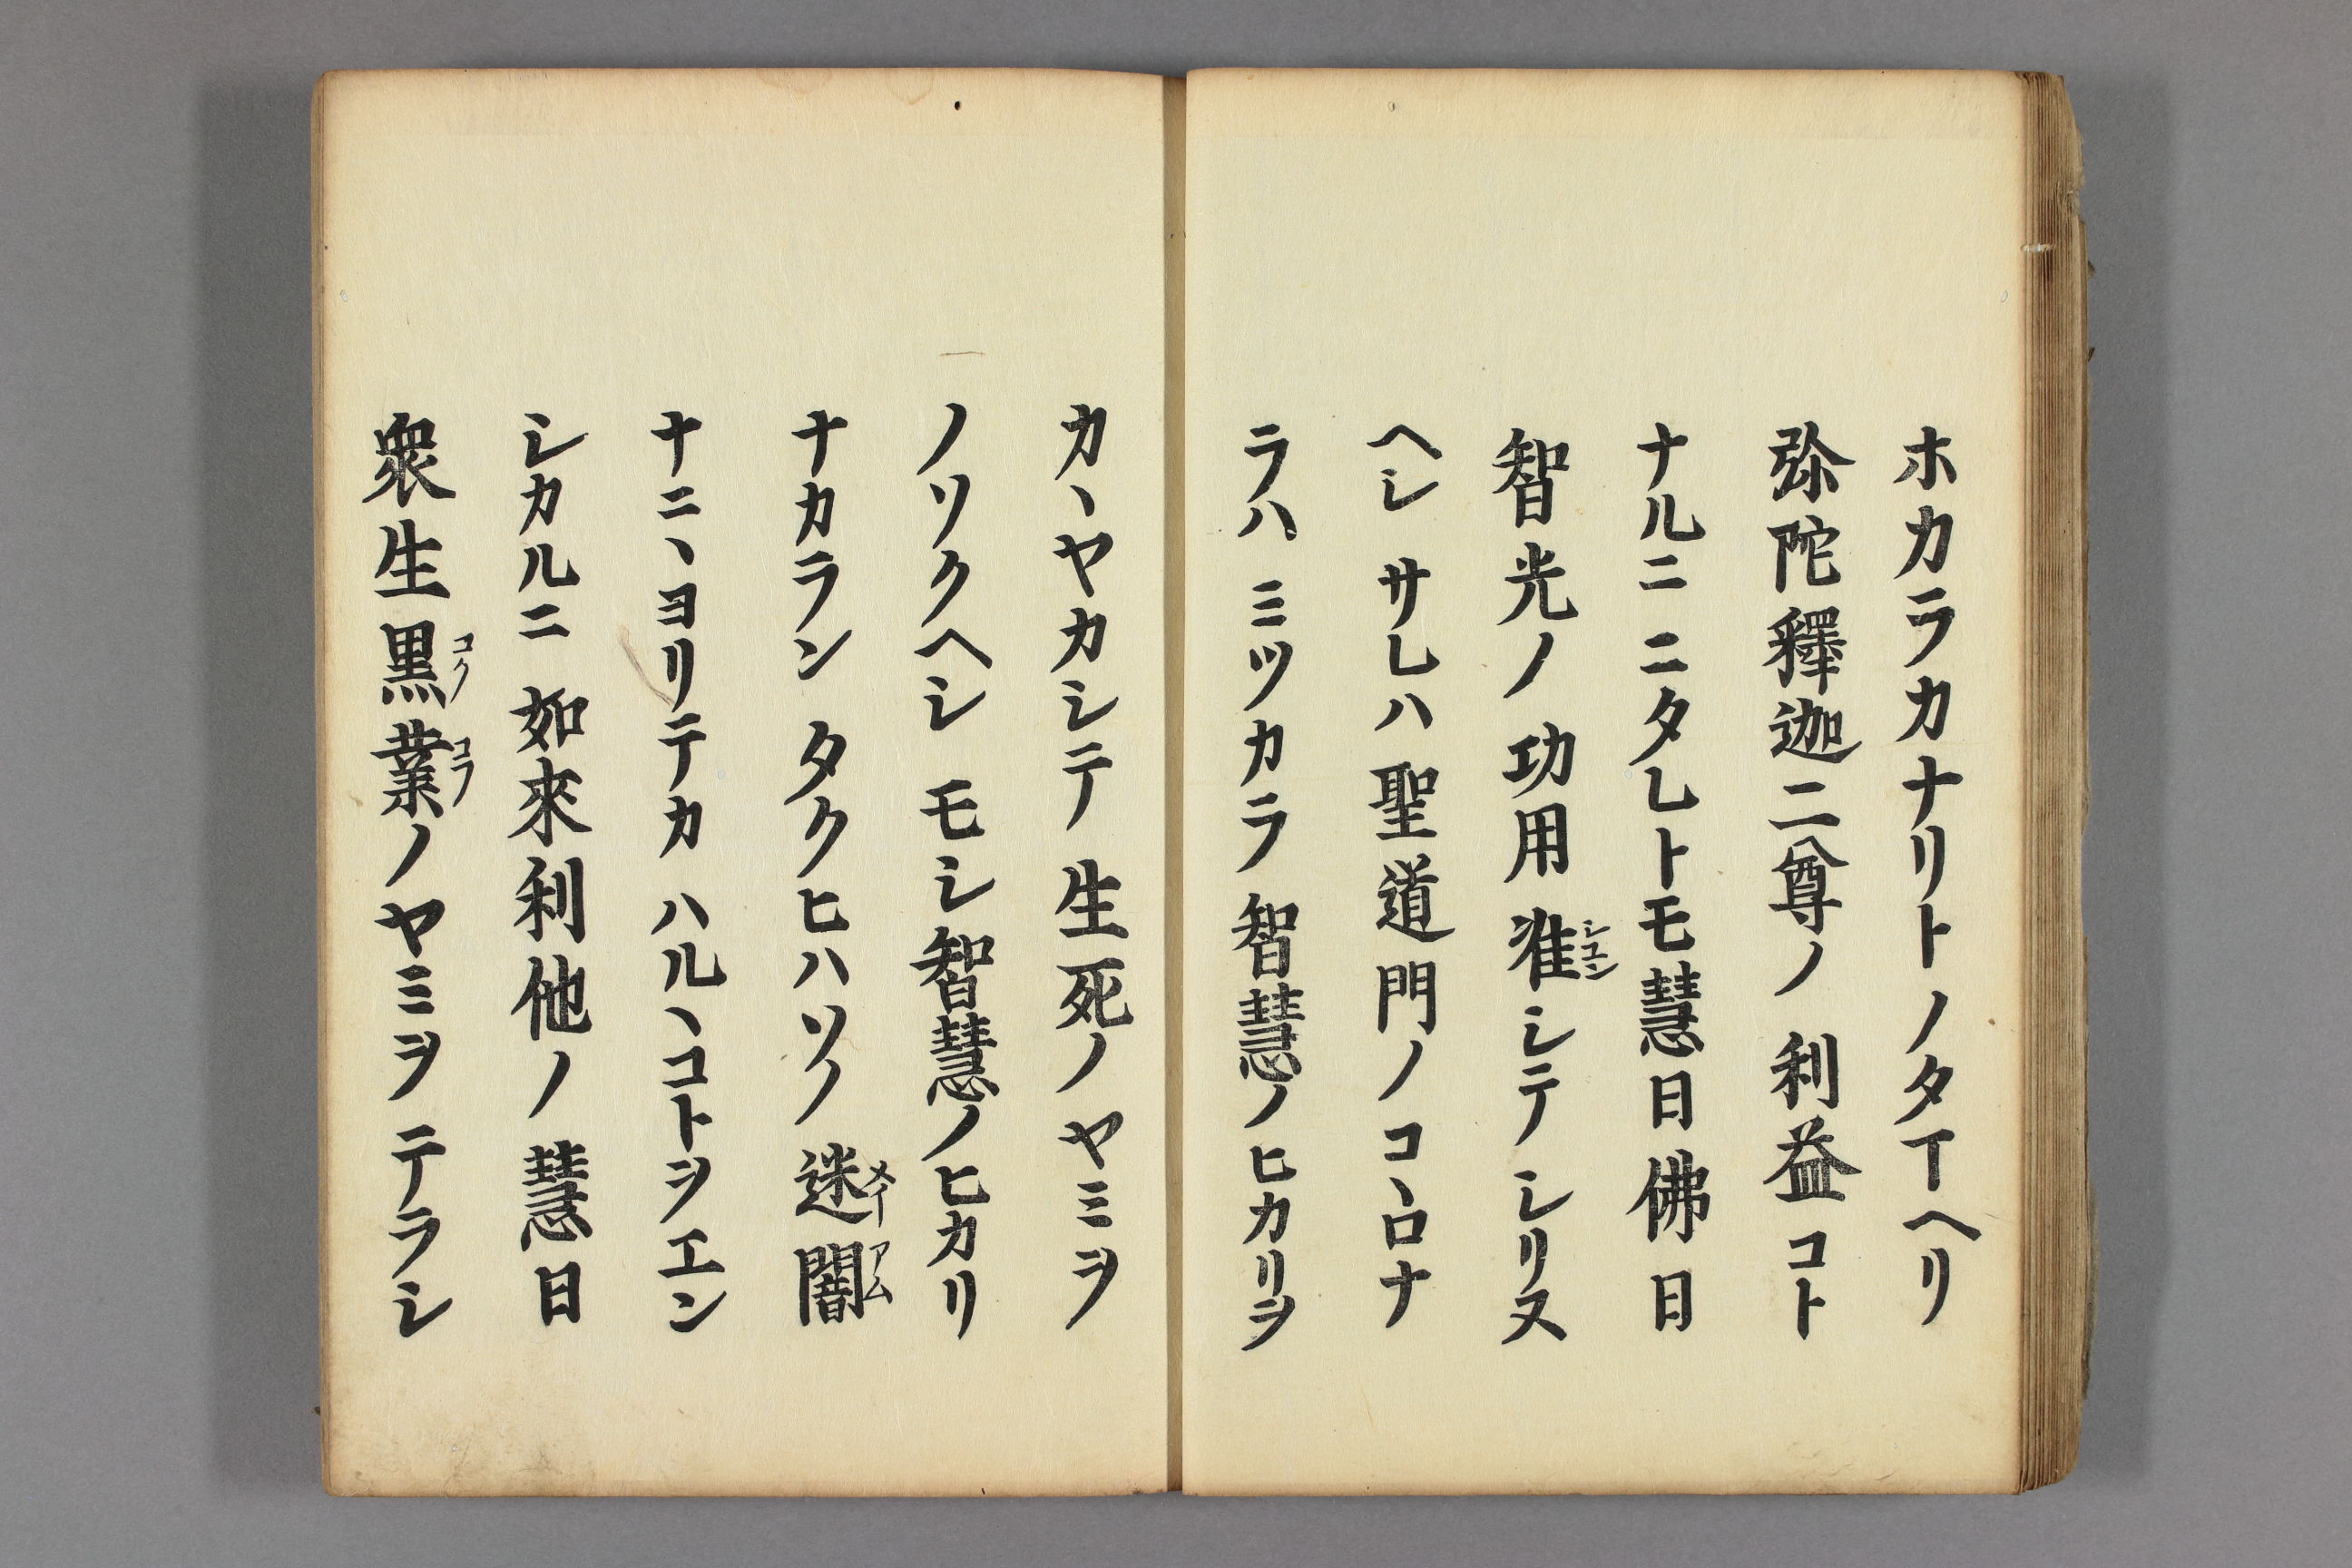 ホカラカナリトノタマヘリ
弥陀釋迦二尊ノ利益コト
ナルニニタレトモ慧日佛日
智光ノ功用准シテシリヌ
シユン
ヘシサレハ聖道門ノコヽロナ
ラハミツカラ智慧ノヒカリヲ
カヽヤカシテ生死ノヤミヲ
ノソクヘシモシ智慧ノヒカリ
ナカランタクヒハソノ迷闇
メイアム
ナニヽヨリテカハルヽコトヲエン
シカルニ如來利他ノ慧日
衆生黒業ノヤミヲテラシ
コクコフ